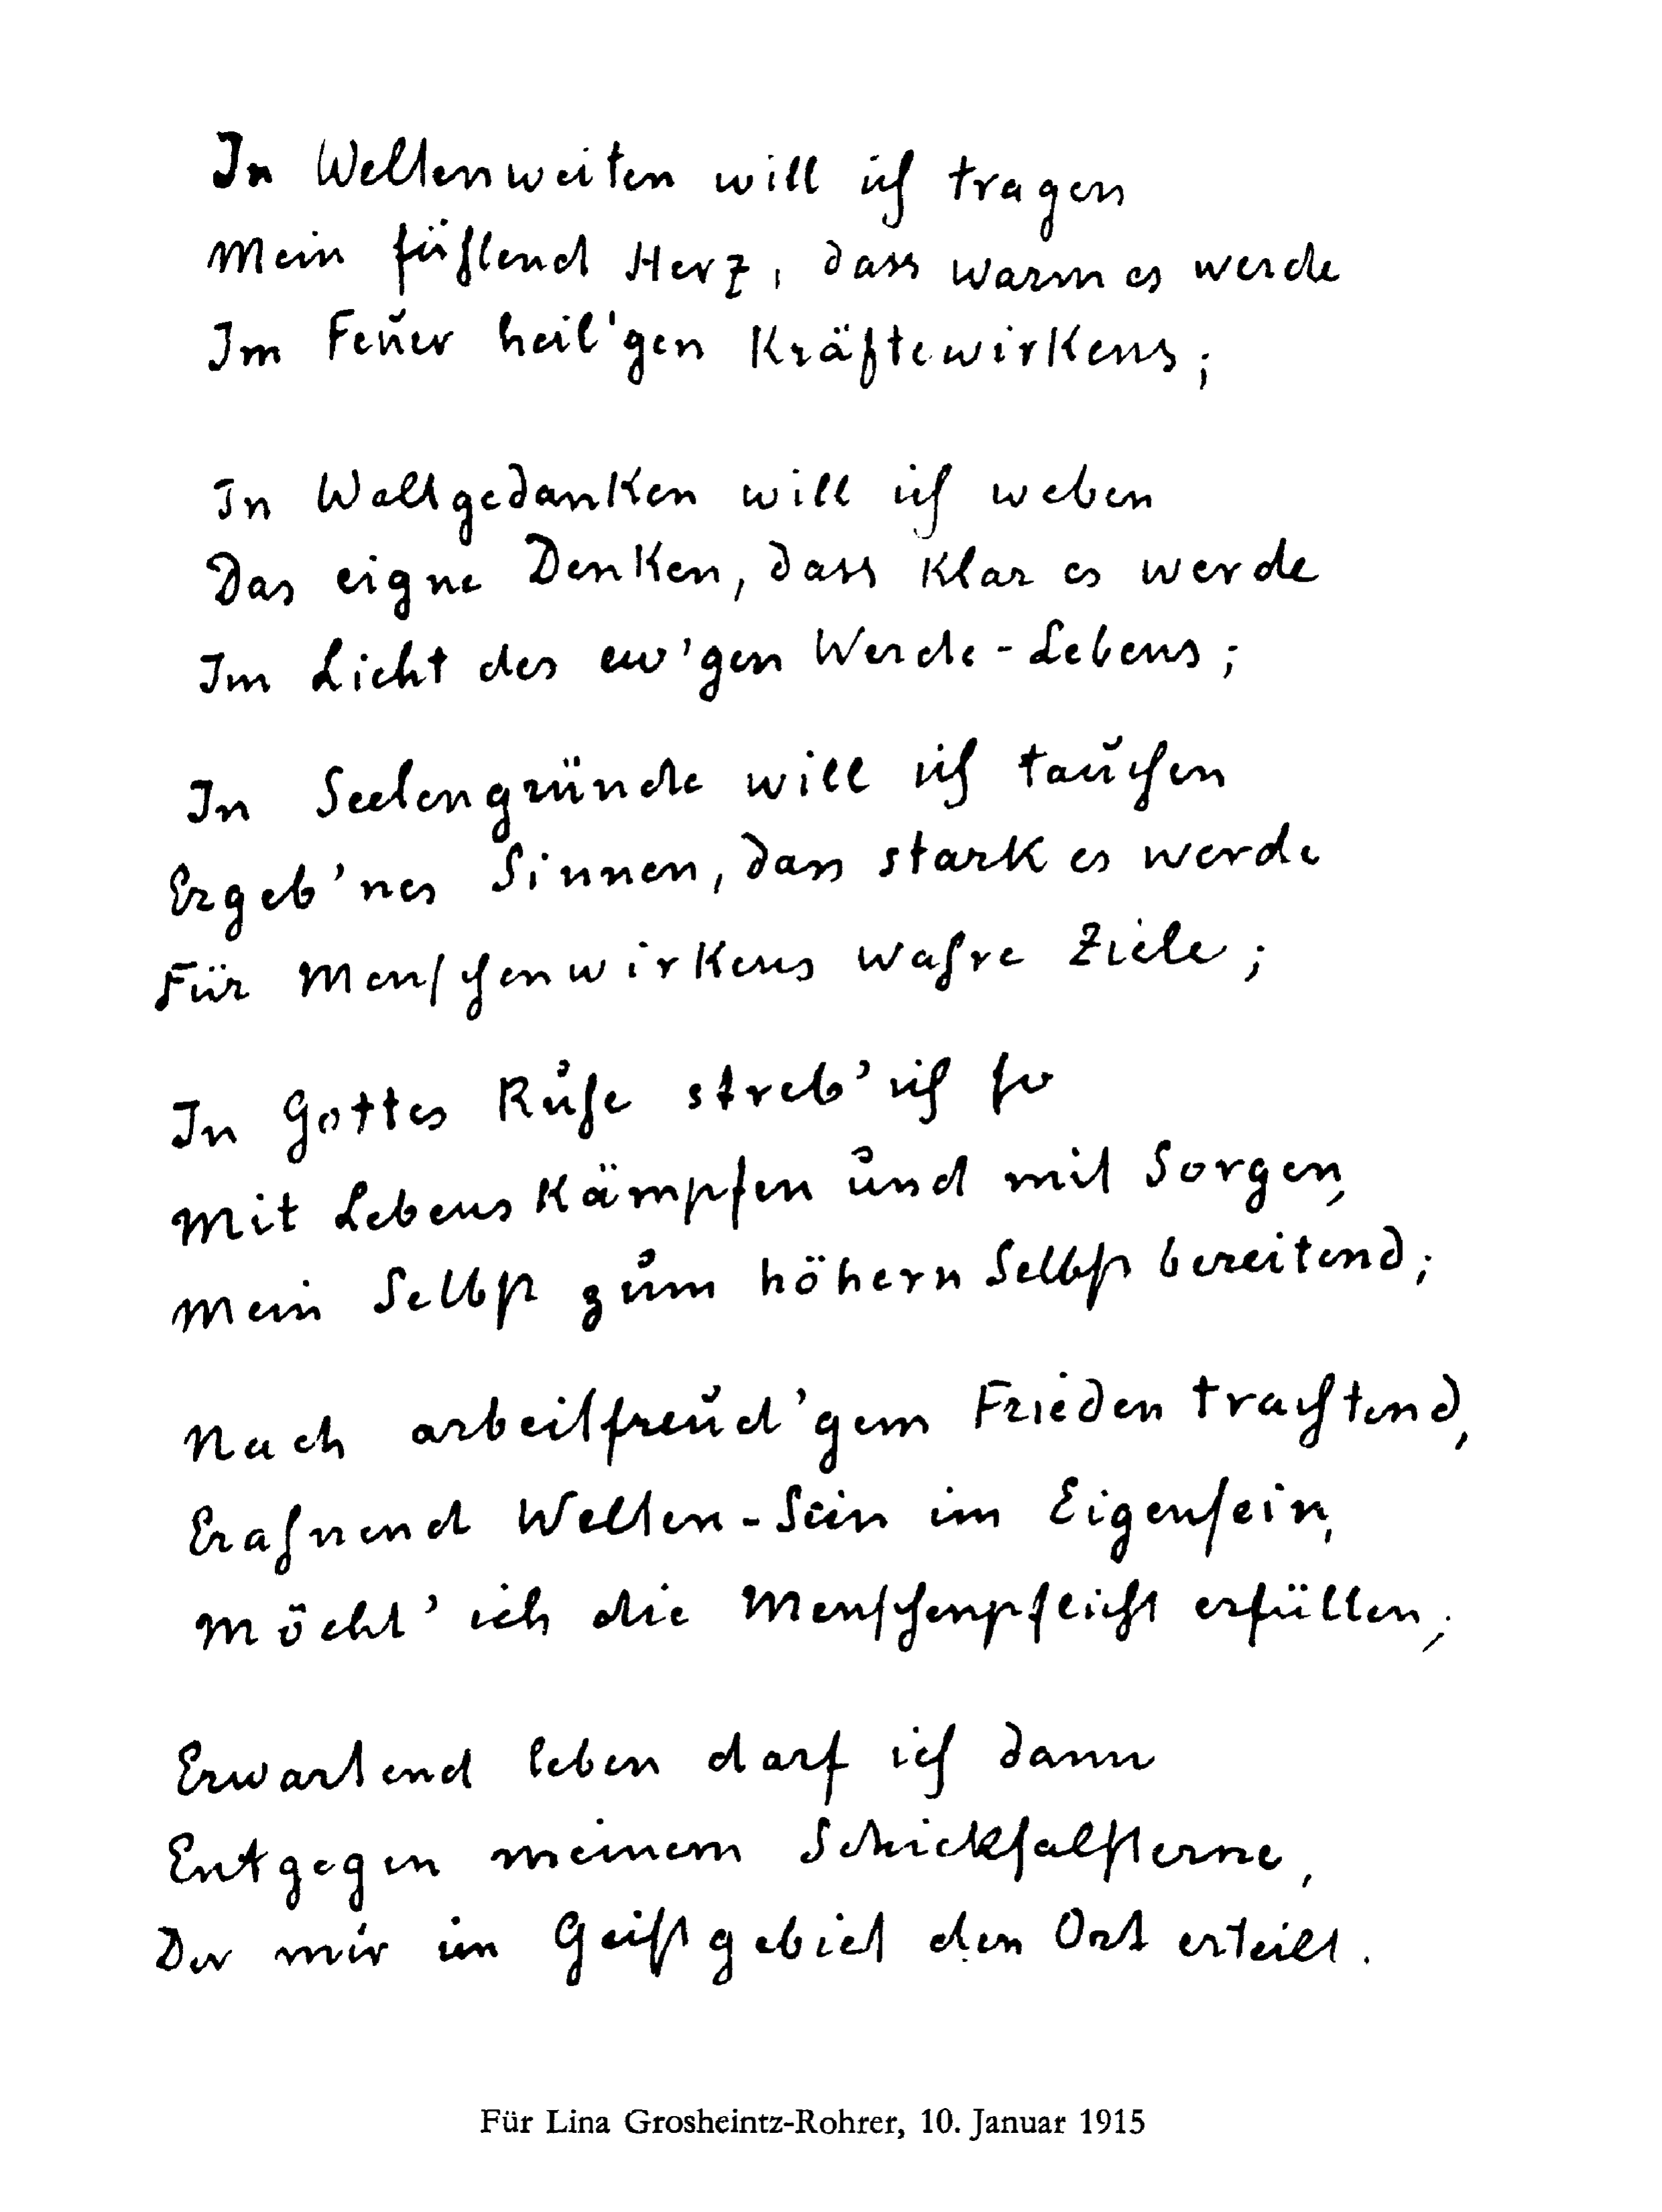 In Weltenweiten will ich tragen
Mein fühlend Herz, dass warm es werde
Im Feuer heil'gen Kräftewirkens;
In Weltgedanken will ich weben
Das eigne Denken, dass klar es werde
Im Licht des ew'gen Werde-Lebens;
In Seelengründe will ich tauchen
Ergeb'nes Sinnen, dass stark es werde
Für Menschenwirkens wahre Ziele;
In Gottes Ruhe streb' ich so
Mit Lebenskämpfen und mit Sorgen,
Mein Selbst zum höhern Selbst bereitend;
Nach arbeitfreud'gem Frieden trachtend,
Erahnend Welten-Sein im Eigensein,
Möcht' ich die Menschenpflicht erfüllen;
Erwartend leben darf ich dann
Entgegen meinem Schicksalsterne,
Der mir im Geistgebiet den Ort erteilt.
Für Lina Grosheintz-Rohrer, 10. Januar 1915